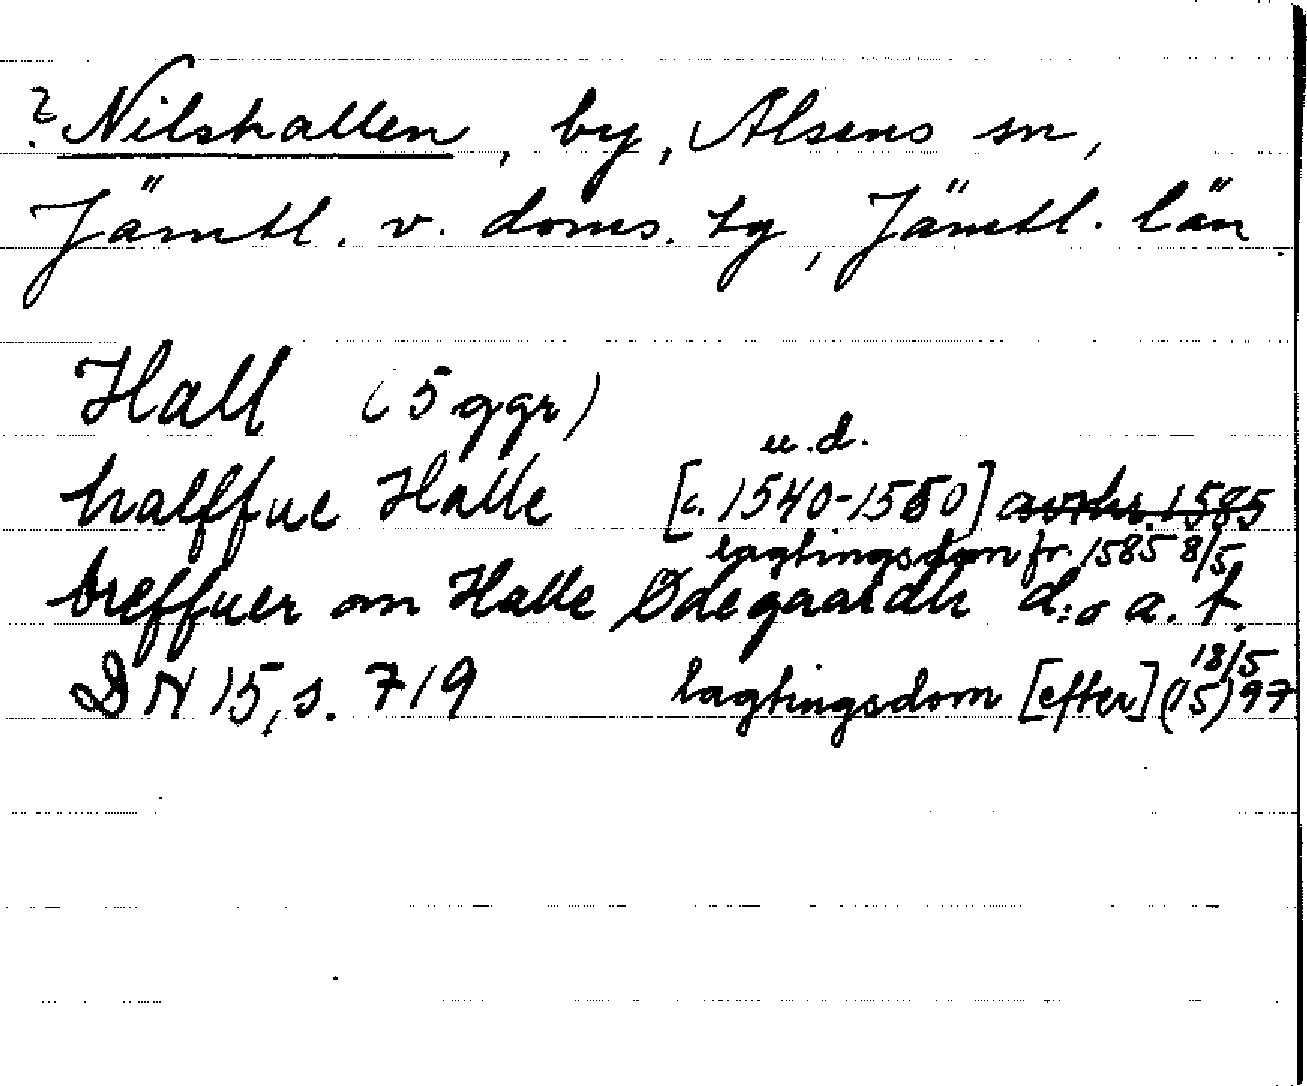 ? Nilshallen, by, Alsens sn,
Jämtl. v. doms. tg, Jämtl. län
Hall (5 ggr)
u.d.
halffue Halle [c. 1540-1550] avskr. 1585
lagtingsdom fr. 1585 8/5
breffuer om Halle Ødegaardh d:o a. f.
18/5
DN 15, s. 719 lagtingsdom [efter] (15)97